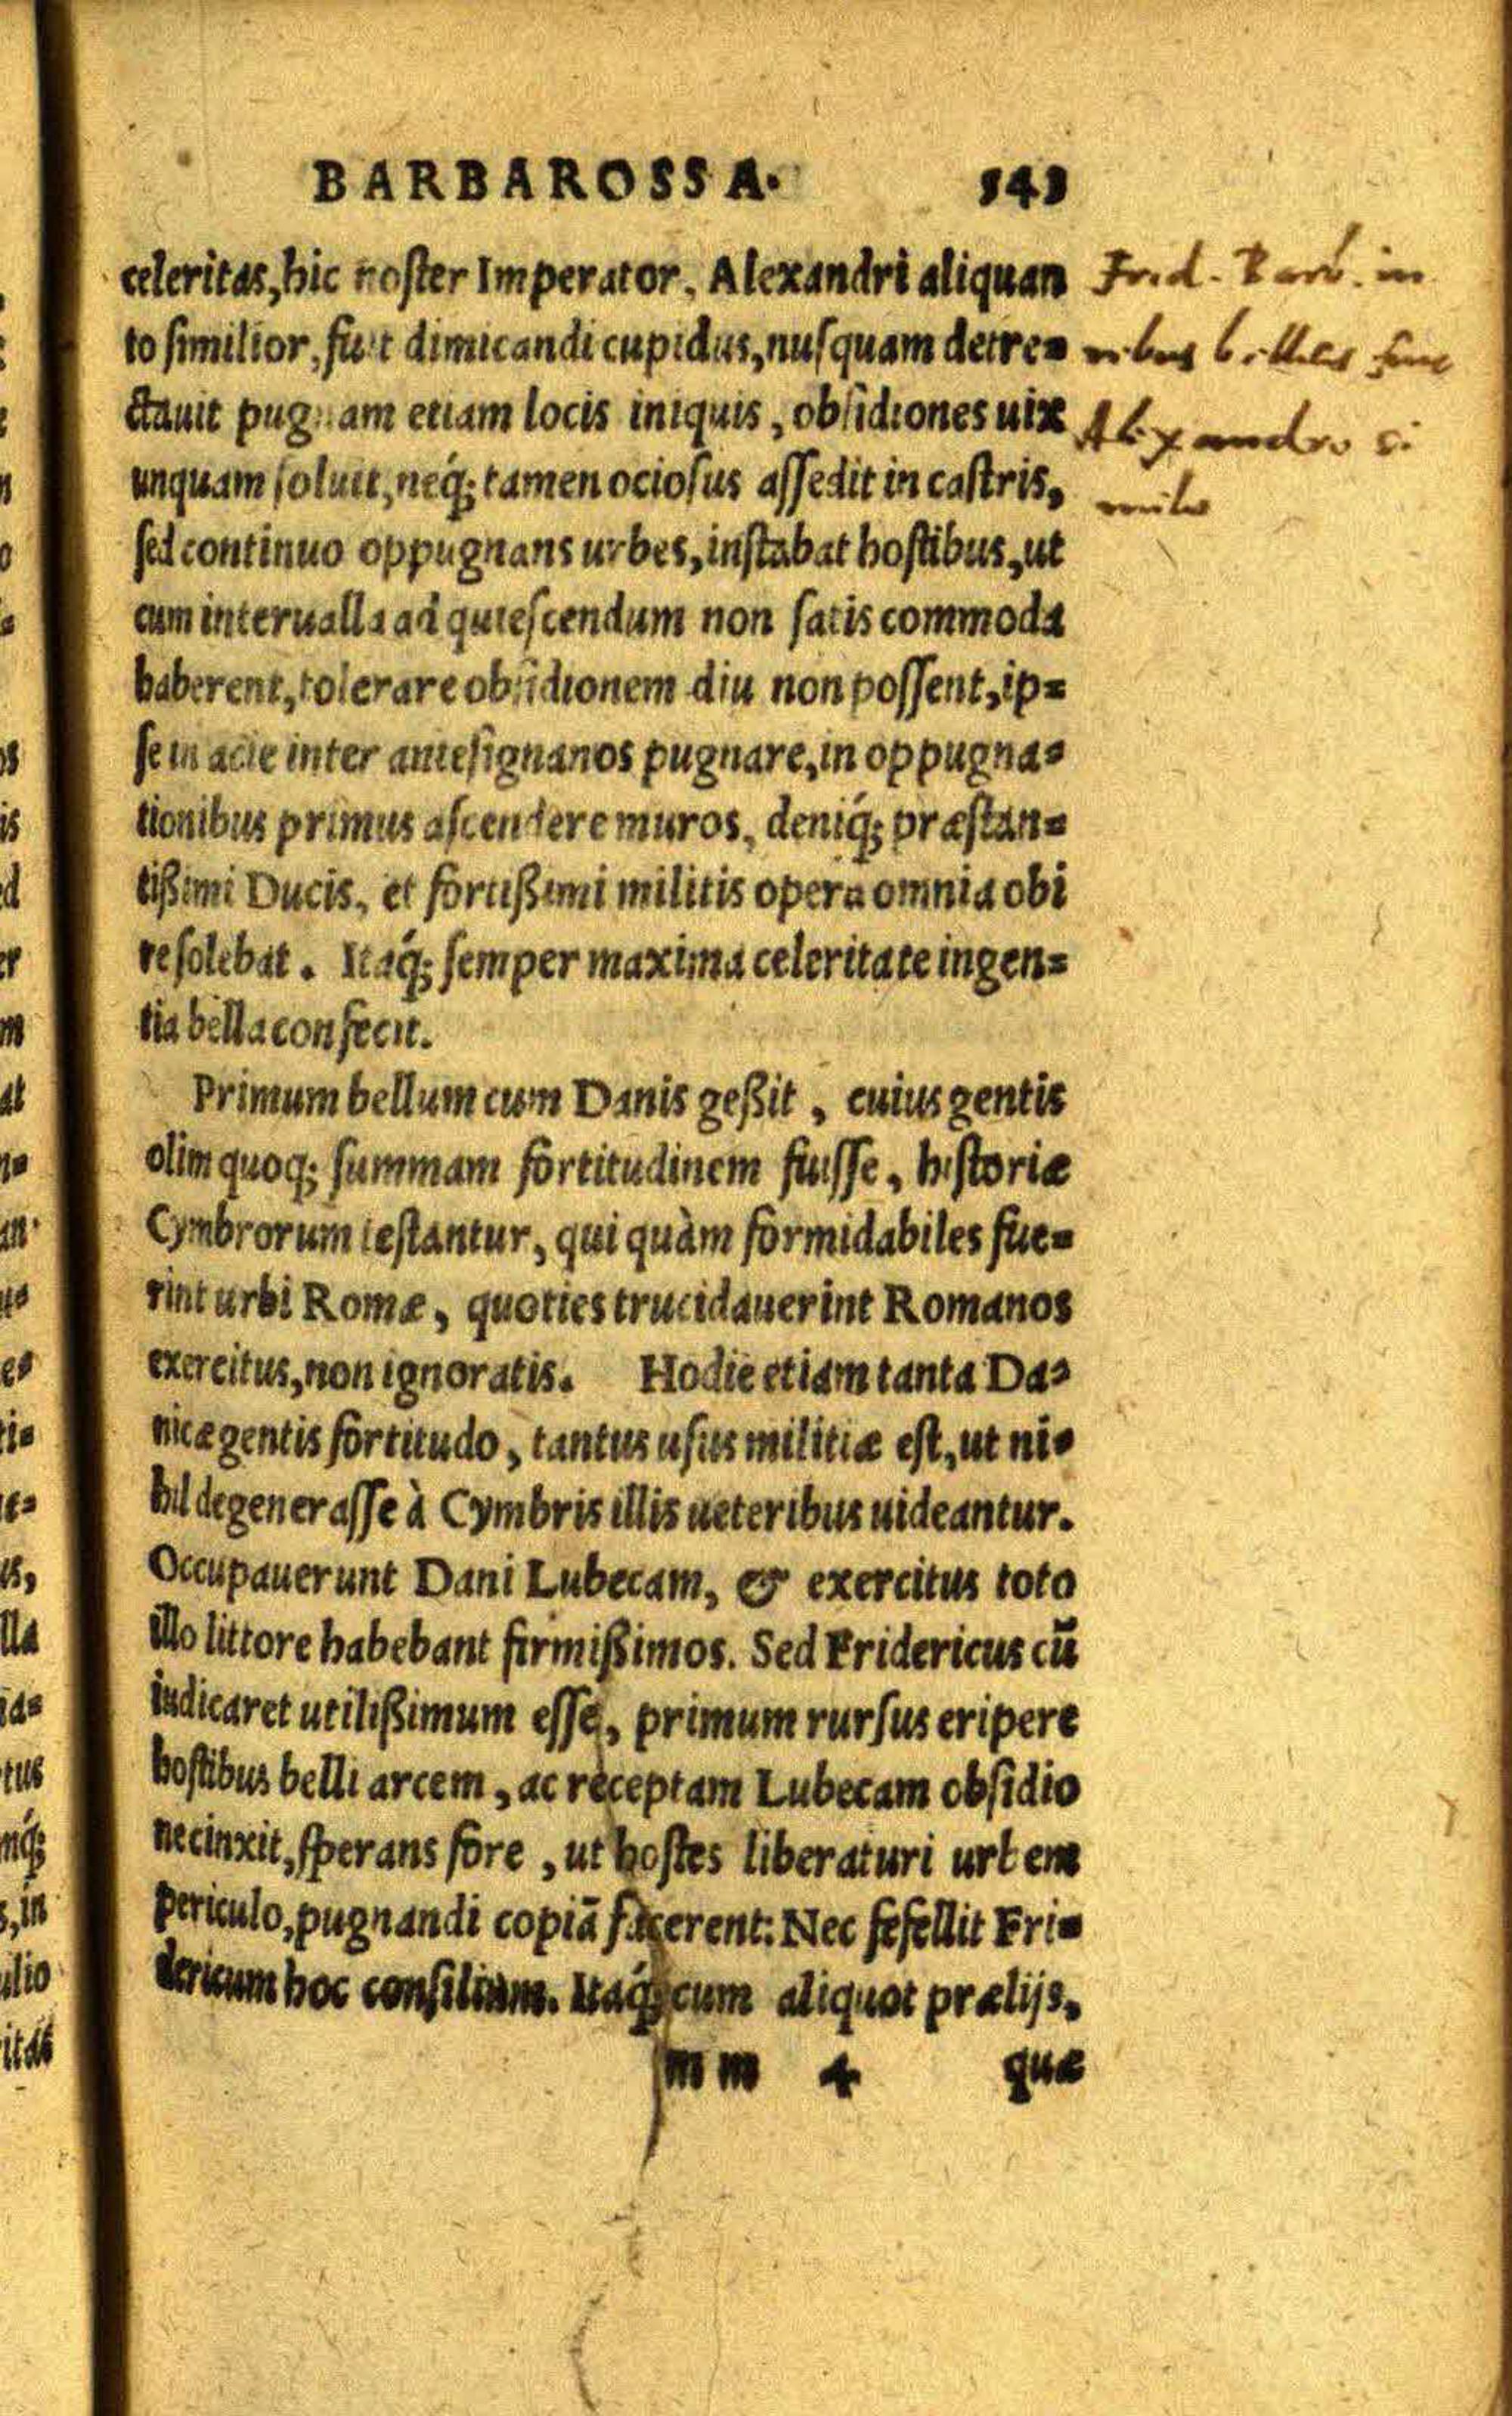 BARBAROSSA. 543
celeritas, hic noster Imperator, Alexandri aliquan
to similior, fuit dimicandi cupidus, nusquam detre=
ctauit pugnam etiam locis iniquis, obsidiones uix
unquam soluit, neq́; tamen ociosus assedit in castris,
sed continuo oppugnans urbes, instabat hostibus, ut
cum interualla ad quiescendum non satis commoda
haberent, tolerare obsidionem diu non possent, ip=
se in acie inter antesignanos pugnare, in oppugna=
tionibus primus ascendere muros, deniq́; præstan=
tißimi Ducis, et fortißimi militis opera omnia obi
re solebat. Itaq́; semper maxima celeritate ingen=
tia bella confecit.
Primum bellum cum Danis geßit, cuius gentis
olim quoq; summam fortitudinem fuisse, historiæ
Cymbrorum testantur, qui quàm formidabiles fue=
rint urbi Romæ, quoties trucidauerint Romanos
exercitus, non ignoratis. Hodie etiam tanta Da=
nicæ gentis fortitudo, tantus usus militiæ est, ut ni=
hil degenerasse à Cymbris illis ueteribus uideantur.
Occupauerunt Dani Lubecam, & exercitus toto
illo littore habebant firmißimos. Sed Fridericus cū
iudicaret utilißimum esse, primum rursus eripere
hostibus belli arcem, ac receptam Lubecam obsidio
ne cinxit, sperans fore, ut hostes liberaturi urbem
periculo, pugnandi copiā facerent: Nec fefellit Fri=
dericum hoc consilium. Itaq́; cum aliquot prælijs,
mm 4 quæ
Frid. Barb. in
rebus bellicis fuit
Alexandro si
milis